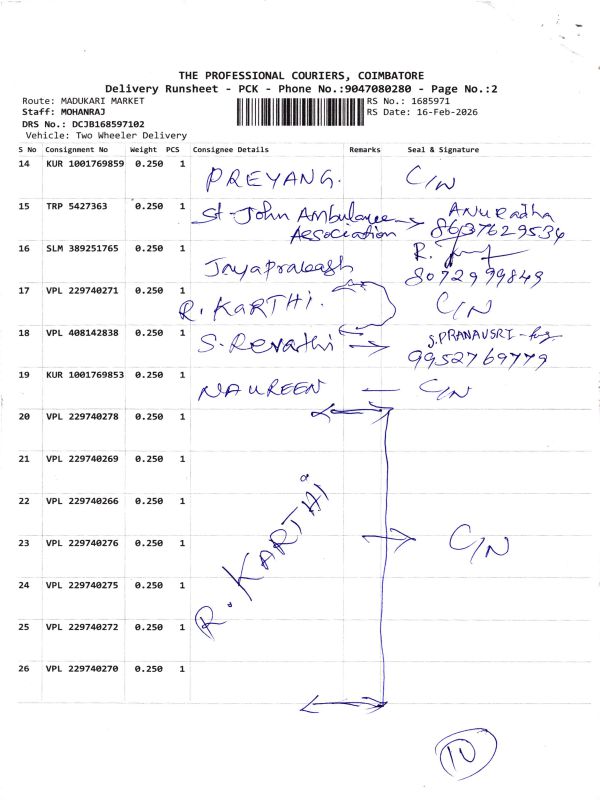 THE PROFESSIONAL COURIERS, COIMBATORE
Delivery Runsheet - PCK - Phone No.:9047080280 - Page No.:2
Route: MADUKARI MARKET
Staff: MOHANRAJ
DRS No.: DCJB168597102
Vehicle: Two Wheeler Delivery
RS No.: 1685971
RS Date: 16-Feb-2026
S No Consignment No Weight PCS Consignee Details Remarks Seal & Signature
14 KUR 1001769859 0.250 1 PREYANG. C/N
15 TRP 5427363 0.250 1 St-John Ambulance Association ANURadha 8637629534
16 SLM 389251765 0.250 1 Jayaprakash R. 8072999849
17 VPL 229740271 0.250 1 R. KARTHI. C/N
18 VPL 408142838 0.250 1 S. Revathi S.PRANAVSRI 9952769779
19 KUR 1001769853 0.250 1 NAUREEN — C/N
20 VPL 229740278 0.250 1
21 VPL 229740269 0.250 1
22 VPL 229740266 0.250 1
23 VPL 229740276 0.250 1 R. KARTHI C/N
24 VPL 229740275 0.250 1
25 VPL 229740272 0.250 1
26 VPL 229740270 0.250 1